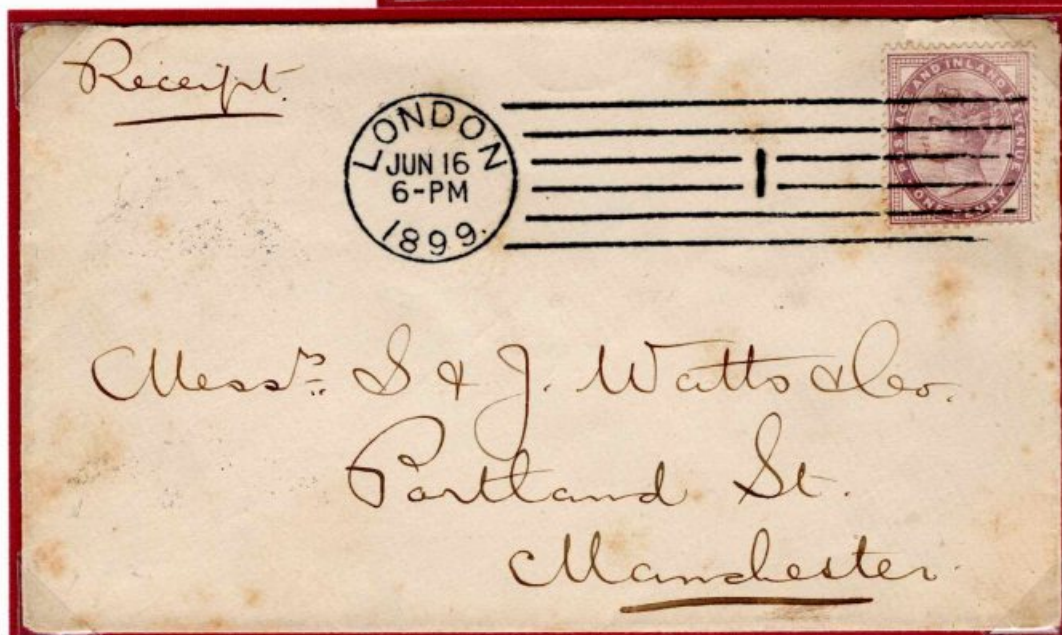 Receipt.
LONDON
JUN 16
6-PM
1899.
1
POSTAGE AND INLAND REVENUE
ONE PENNY
Messrs. S & J. Watts & Co.
Portland St.
Manchester.